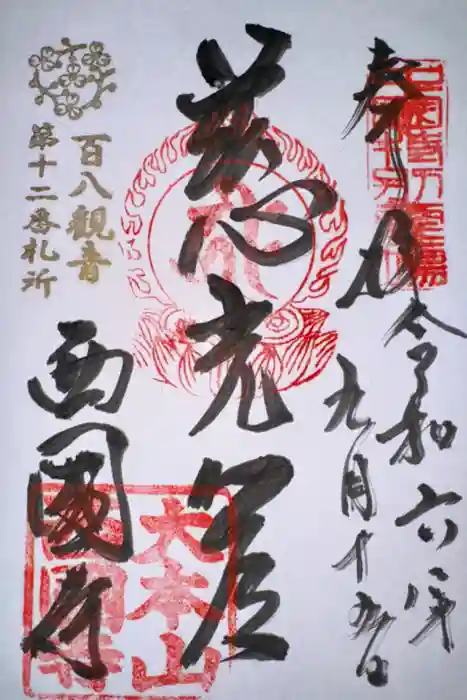 奉拝
令和六年
九月十九日
慈光
西國寺
大本山
西國寺
百八観音
第十二番札所